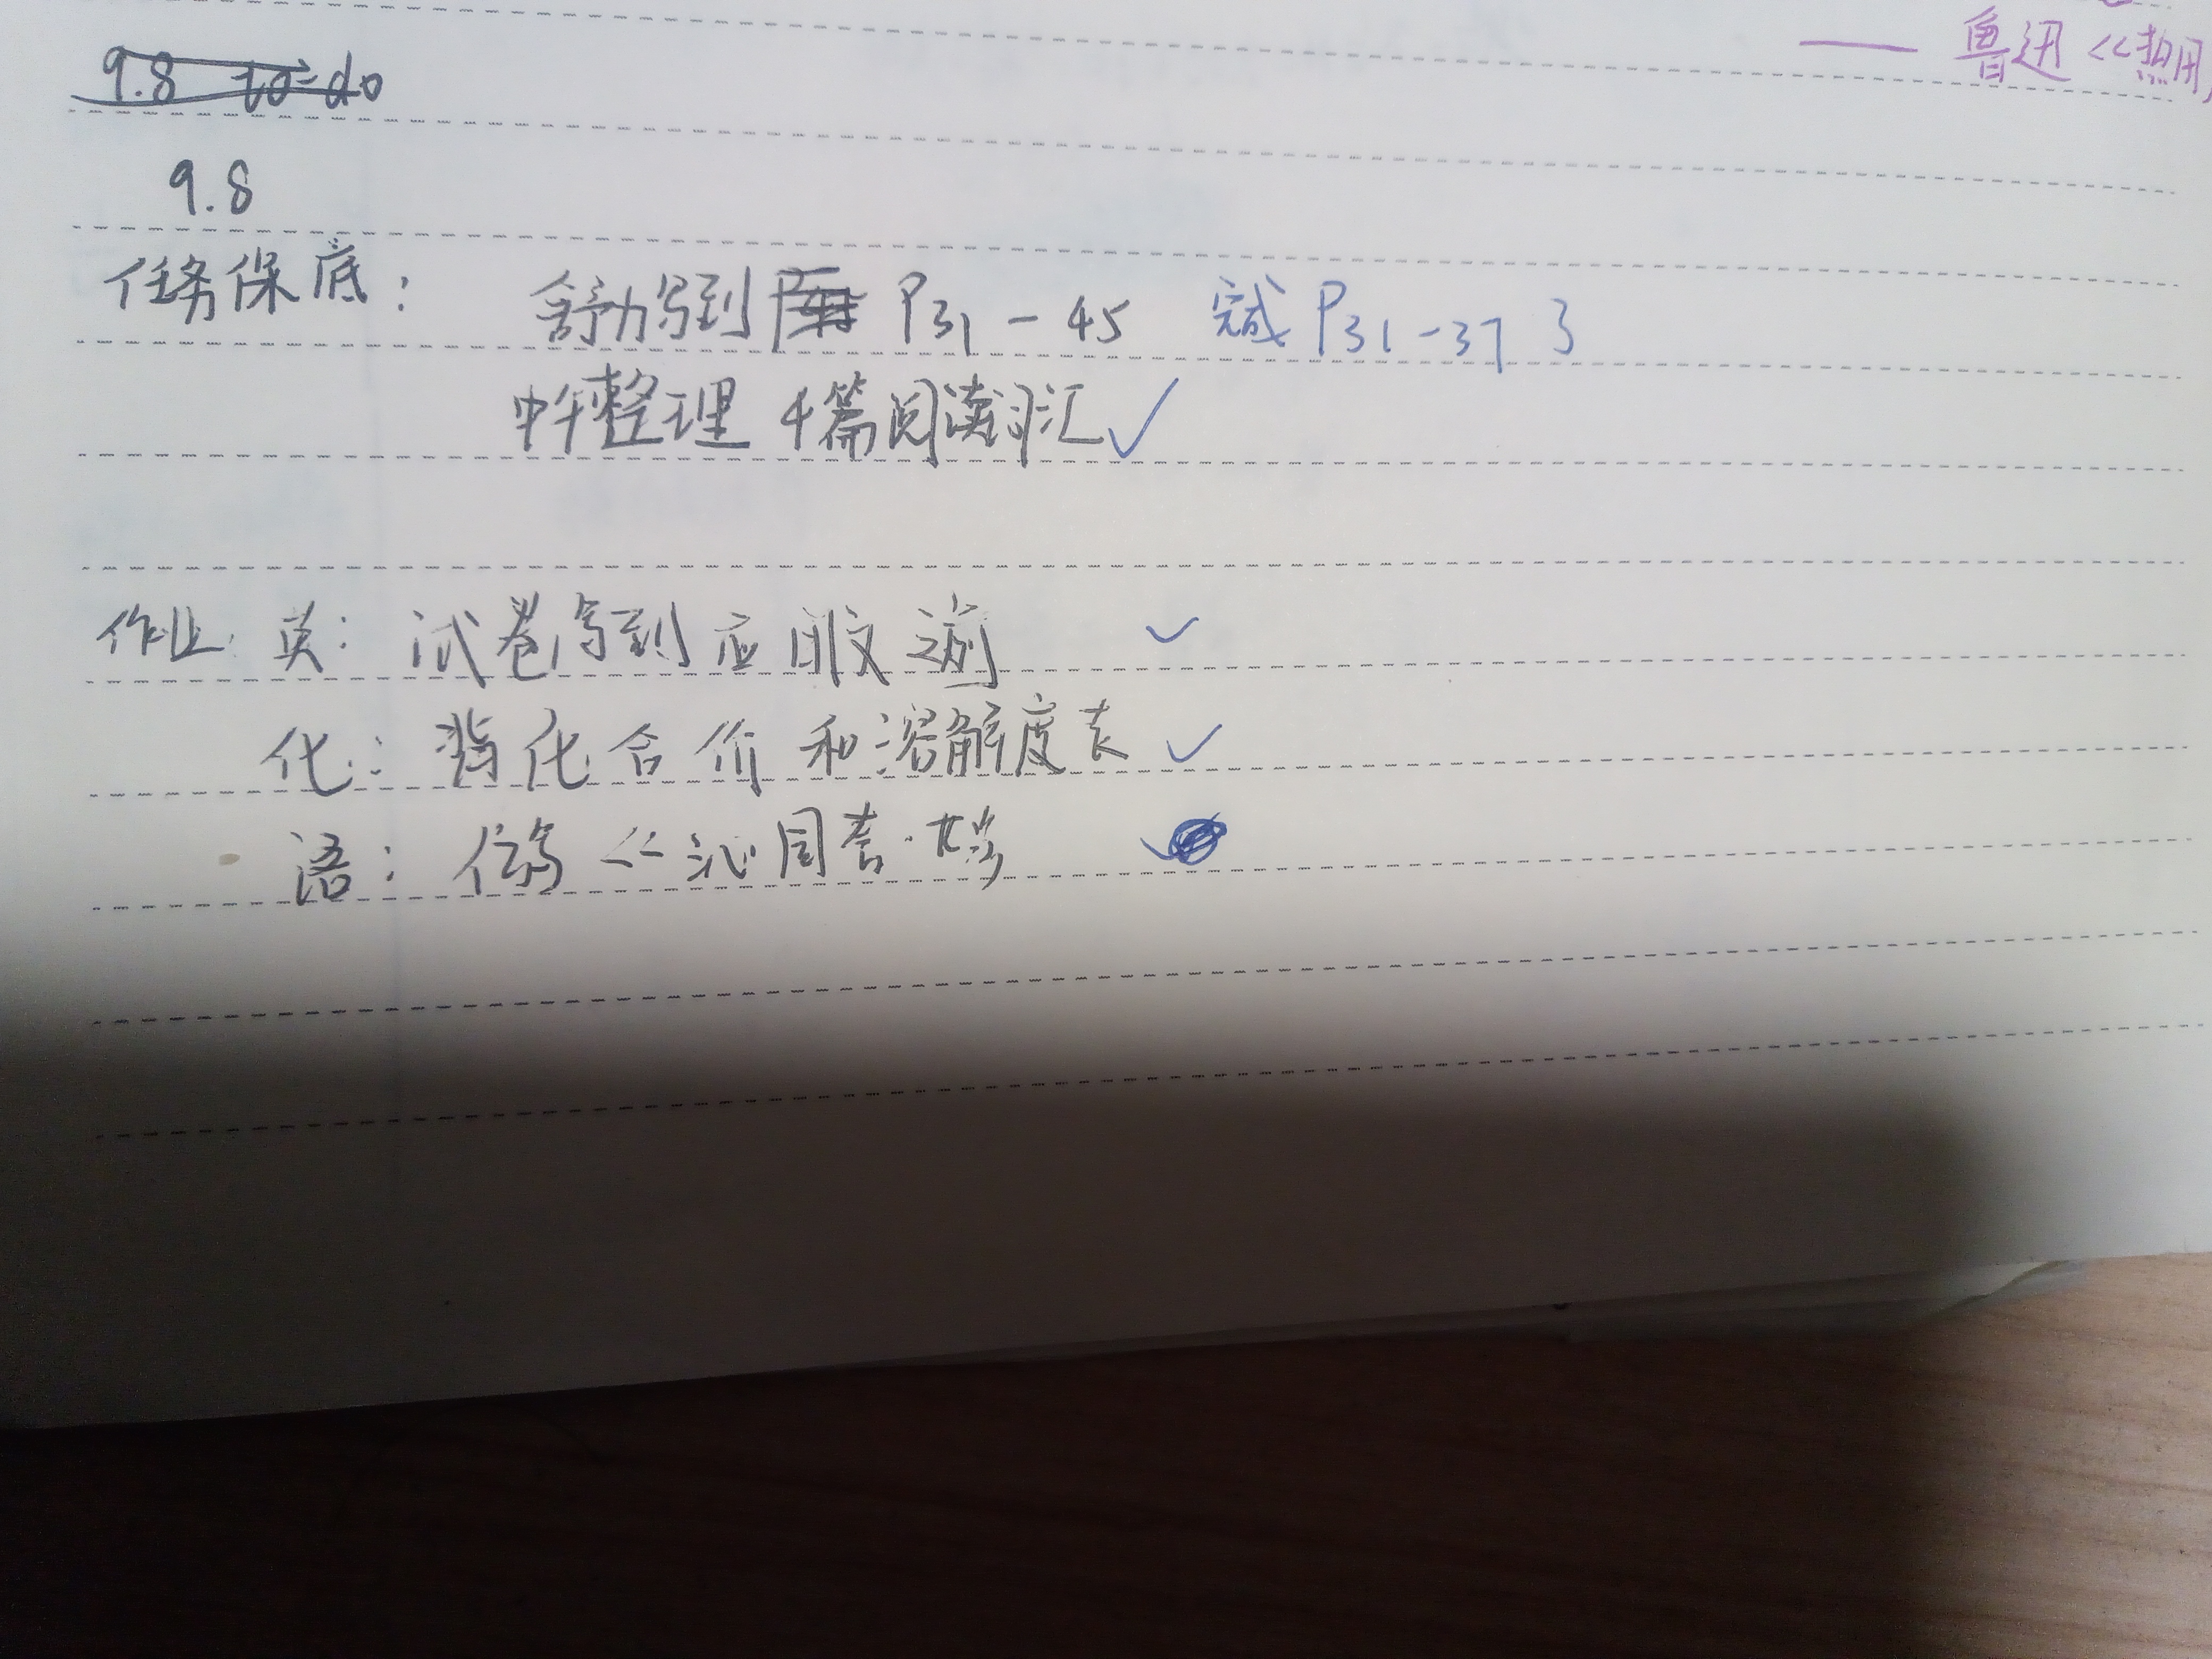 —— 鲁迅《热风
9.8 to-do
9.8
任务保底：
写到 P31-45 完成 P31-37了
中午整理 4篇阅读词汇 ✓
作业 英：试卷写到应用文之前 ✓
化：背化合价和溶解度表 ✓
语：仿写《沁园春·长沙